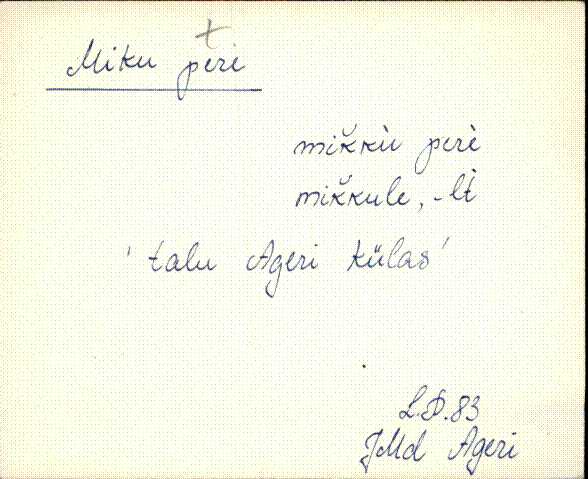 +
Miku peri
mĭkkù perè
mĭkkule, -lt
'talu Ageri külas'
L.P. 83
JMd Ageri